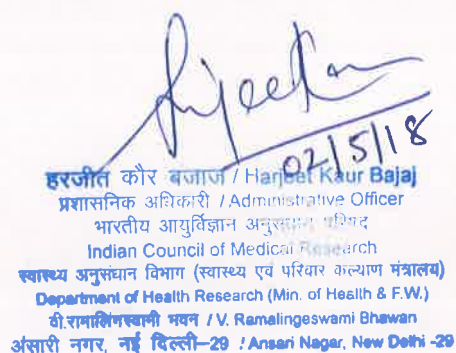 02/5/18
हरजीत कौर बजाज / Harjeet Kaur Bajaj
प्रशासनिक अधिकारी / Administrative Officer
भारतीय आयुर्विज्ञान अनुसंधान परिषद
Indian Council of Medical Research
स्वास्थ्य अनुसंधान विभाग (स्वास्थ्य एवं परिवार कल्याण मंत्रालय)
Department of Health Research (Min. of Health & F.W.)
वी.रामालिंगस्वामी भवन / V. Ramalingeswami Bhawan
अंसारी नगर, नई दिल्ली–29 / Ansari Nagar, New Delhi -29